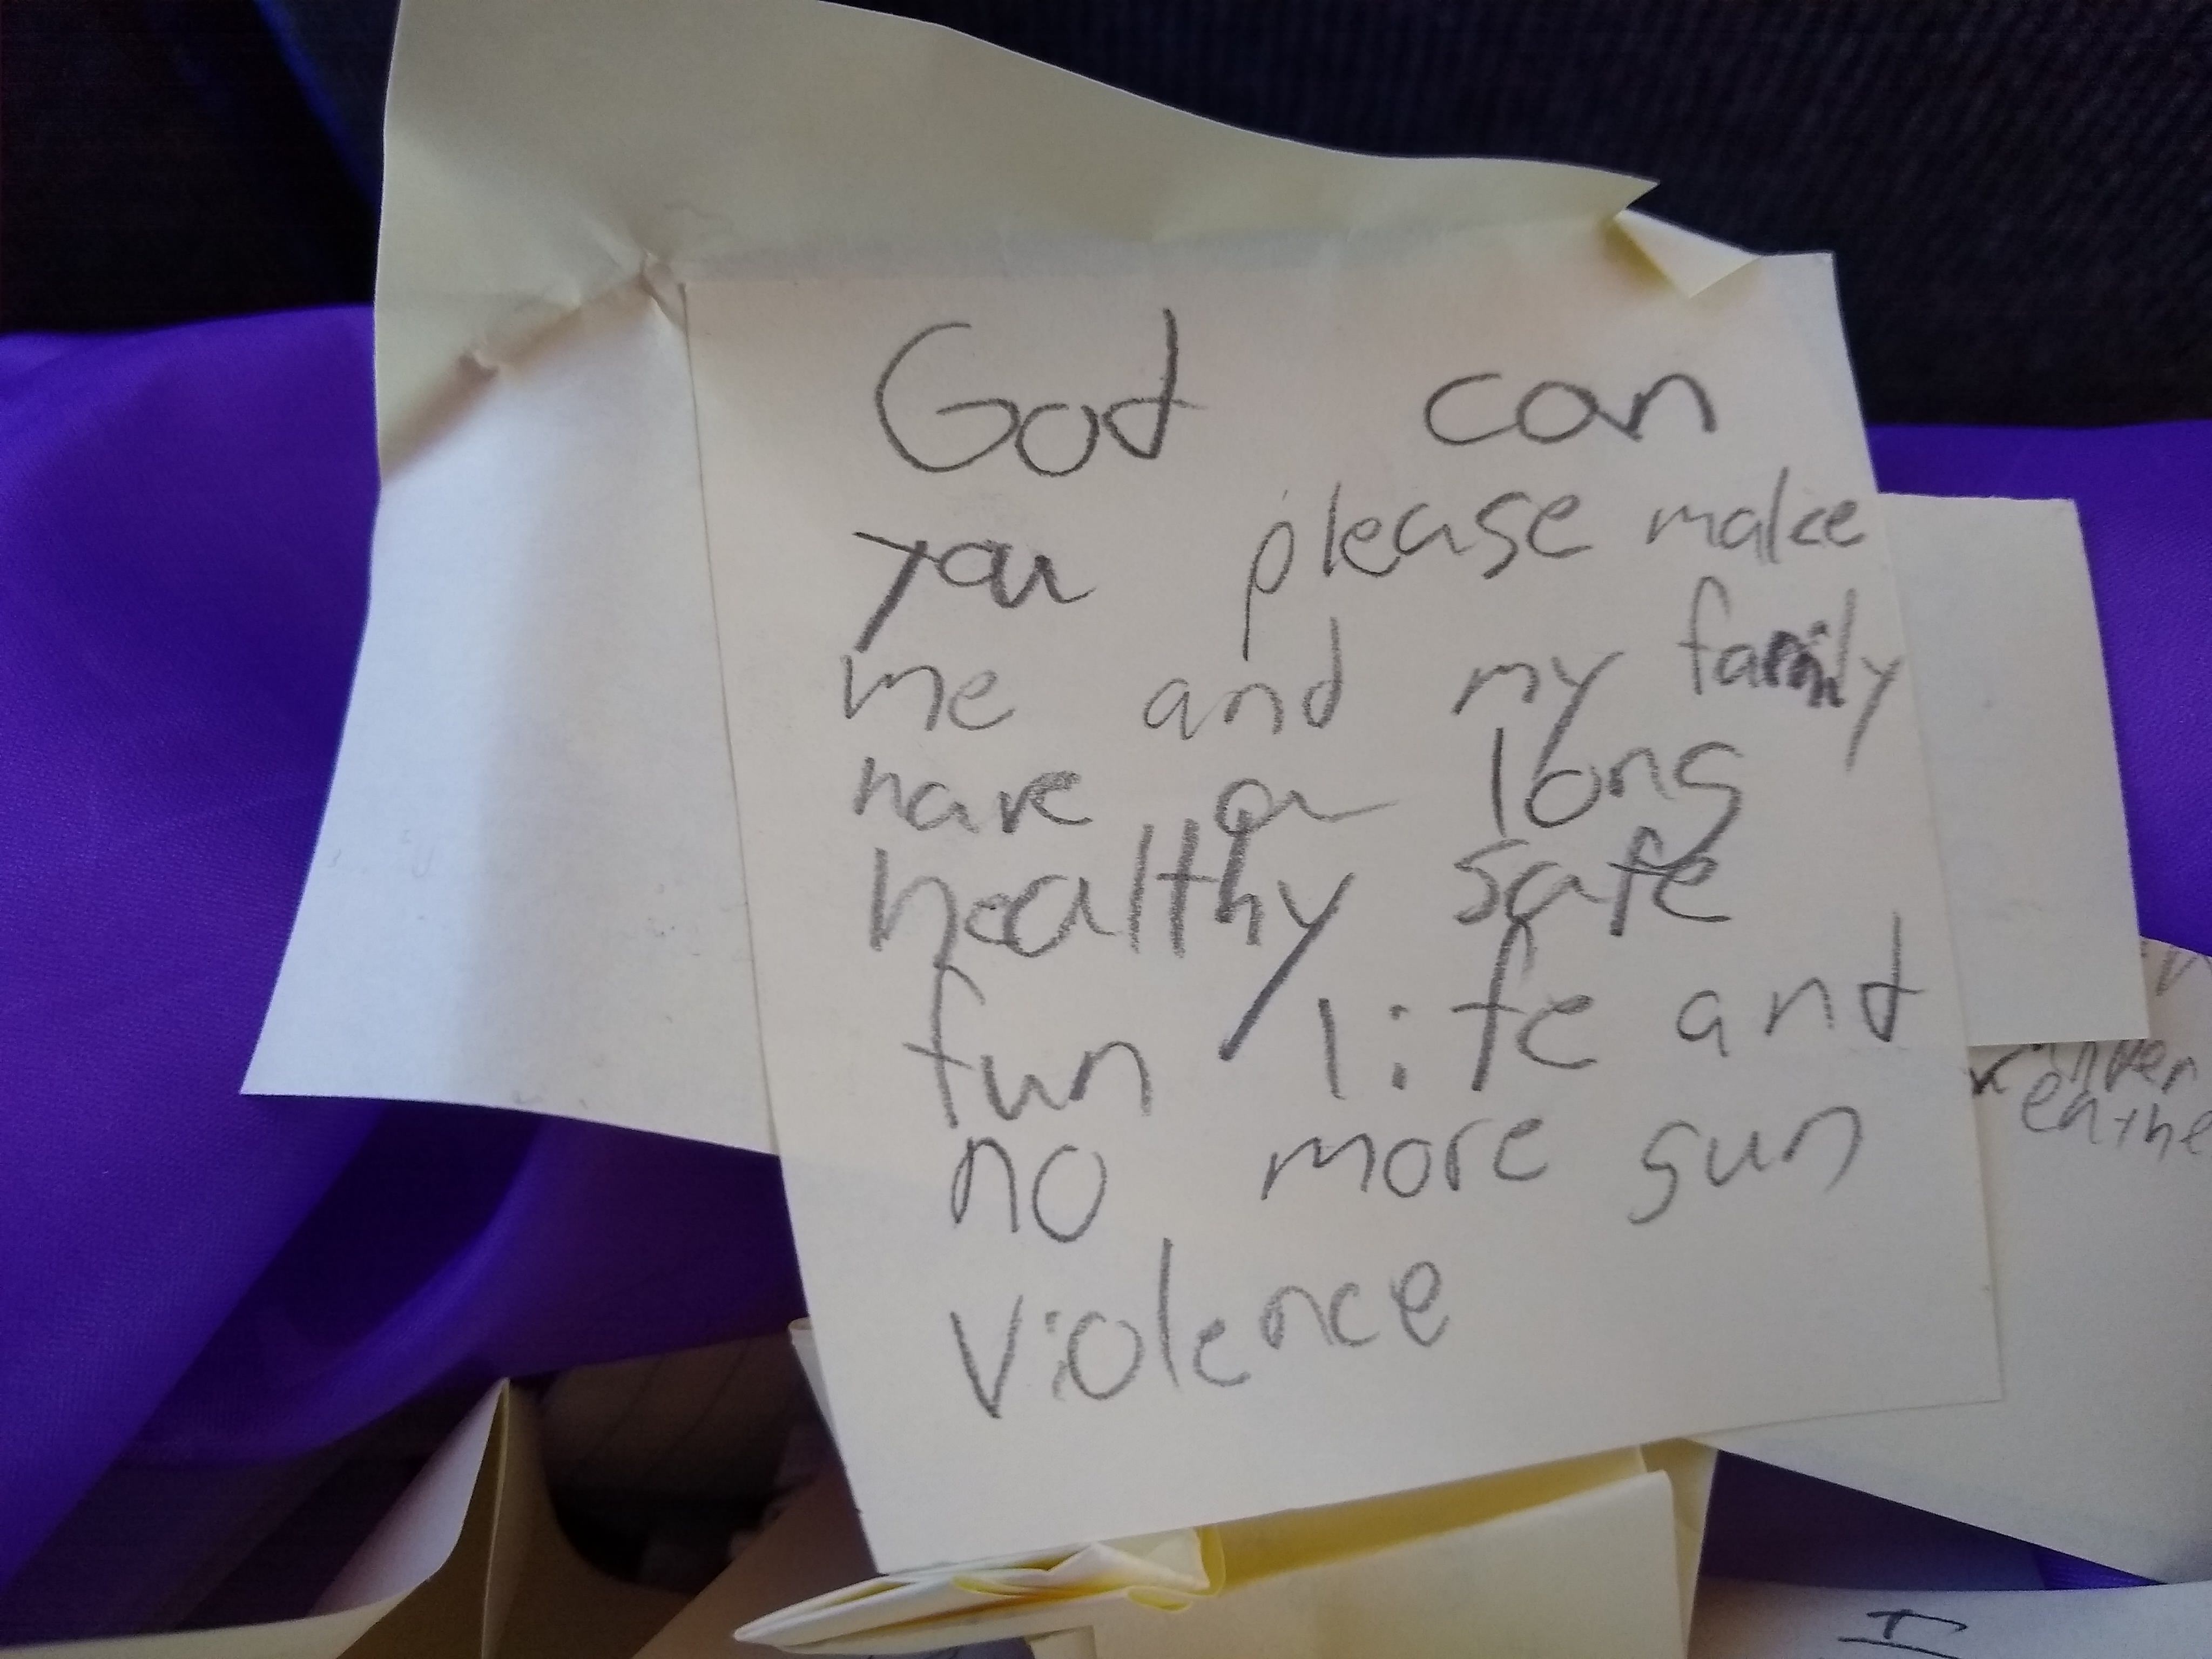 God can
you please make
me and my family
have a long
healthy safe
fun life and
no more gun
violence
I